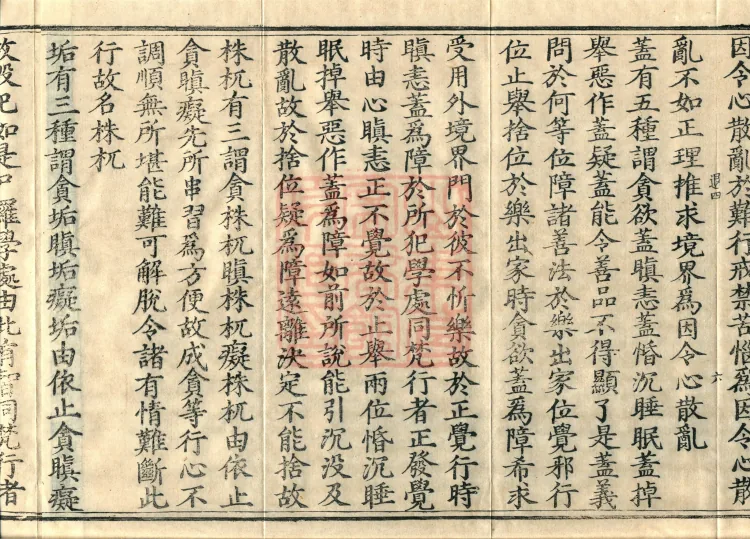 因令心散亂於難行戒禁苦惱爲因令心散
亂不如正理推求境界爲因令心散亂
蓋有五種謂貪欲蓋瞋恚蓋惛沉睡眠蓋掉
舉惡作蓋疑蓋能令善品不得顯了是蓋義
問於何等位障諸善法於樂出家位覺邪行
位止舉捨位於樂出家時貪欲蓋爲障希求
受用外境界門於彼不忻樂故於正覺行時
瞋恚蓋爲障於所犯學處同梵行者正發覺
時由心瞋恚正不覺故於止舉兩位惛沉睡
眠掉舉惡作蓋爲障如前所說能引沉没及
散亂故於捨位疑爲障遠離決定不能捨故
株杌有三謂貪株杌瞋株杌癡株杌由依止
貪瞋癡先所串習爲方便故成貪等行心不
調順無所堪能難可解脫令諸有情難斷此
行故名株杌
垢有三種謂貪垢瞋垢癡垢由依止貪瞋癡
故毀犯如是尸羅學處由此有智同梵行者